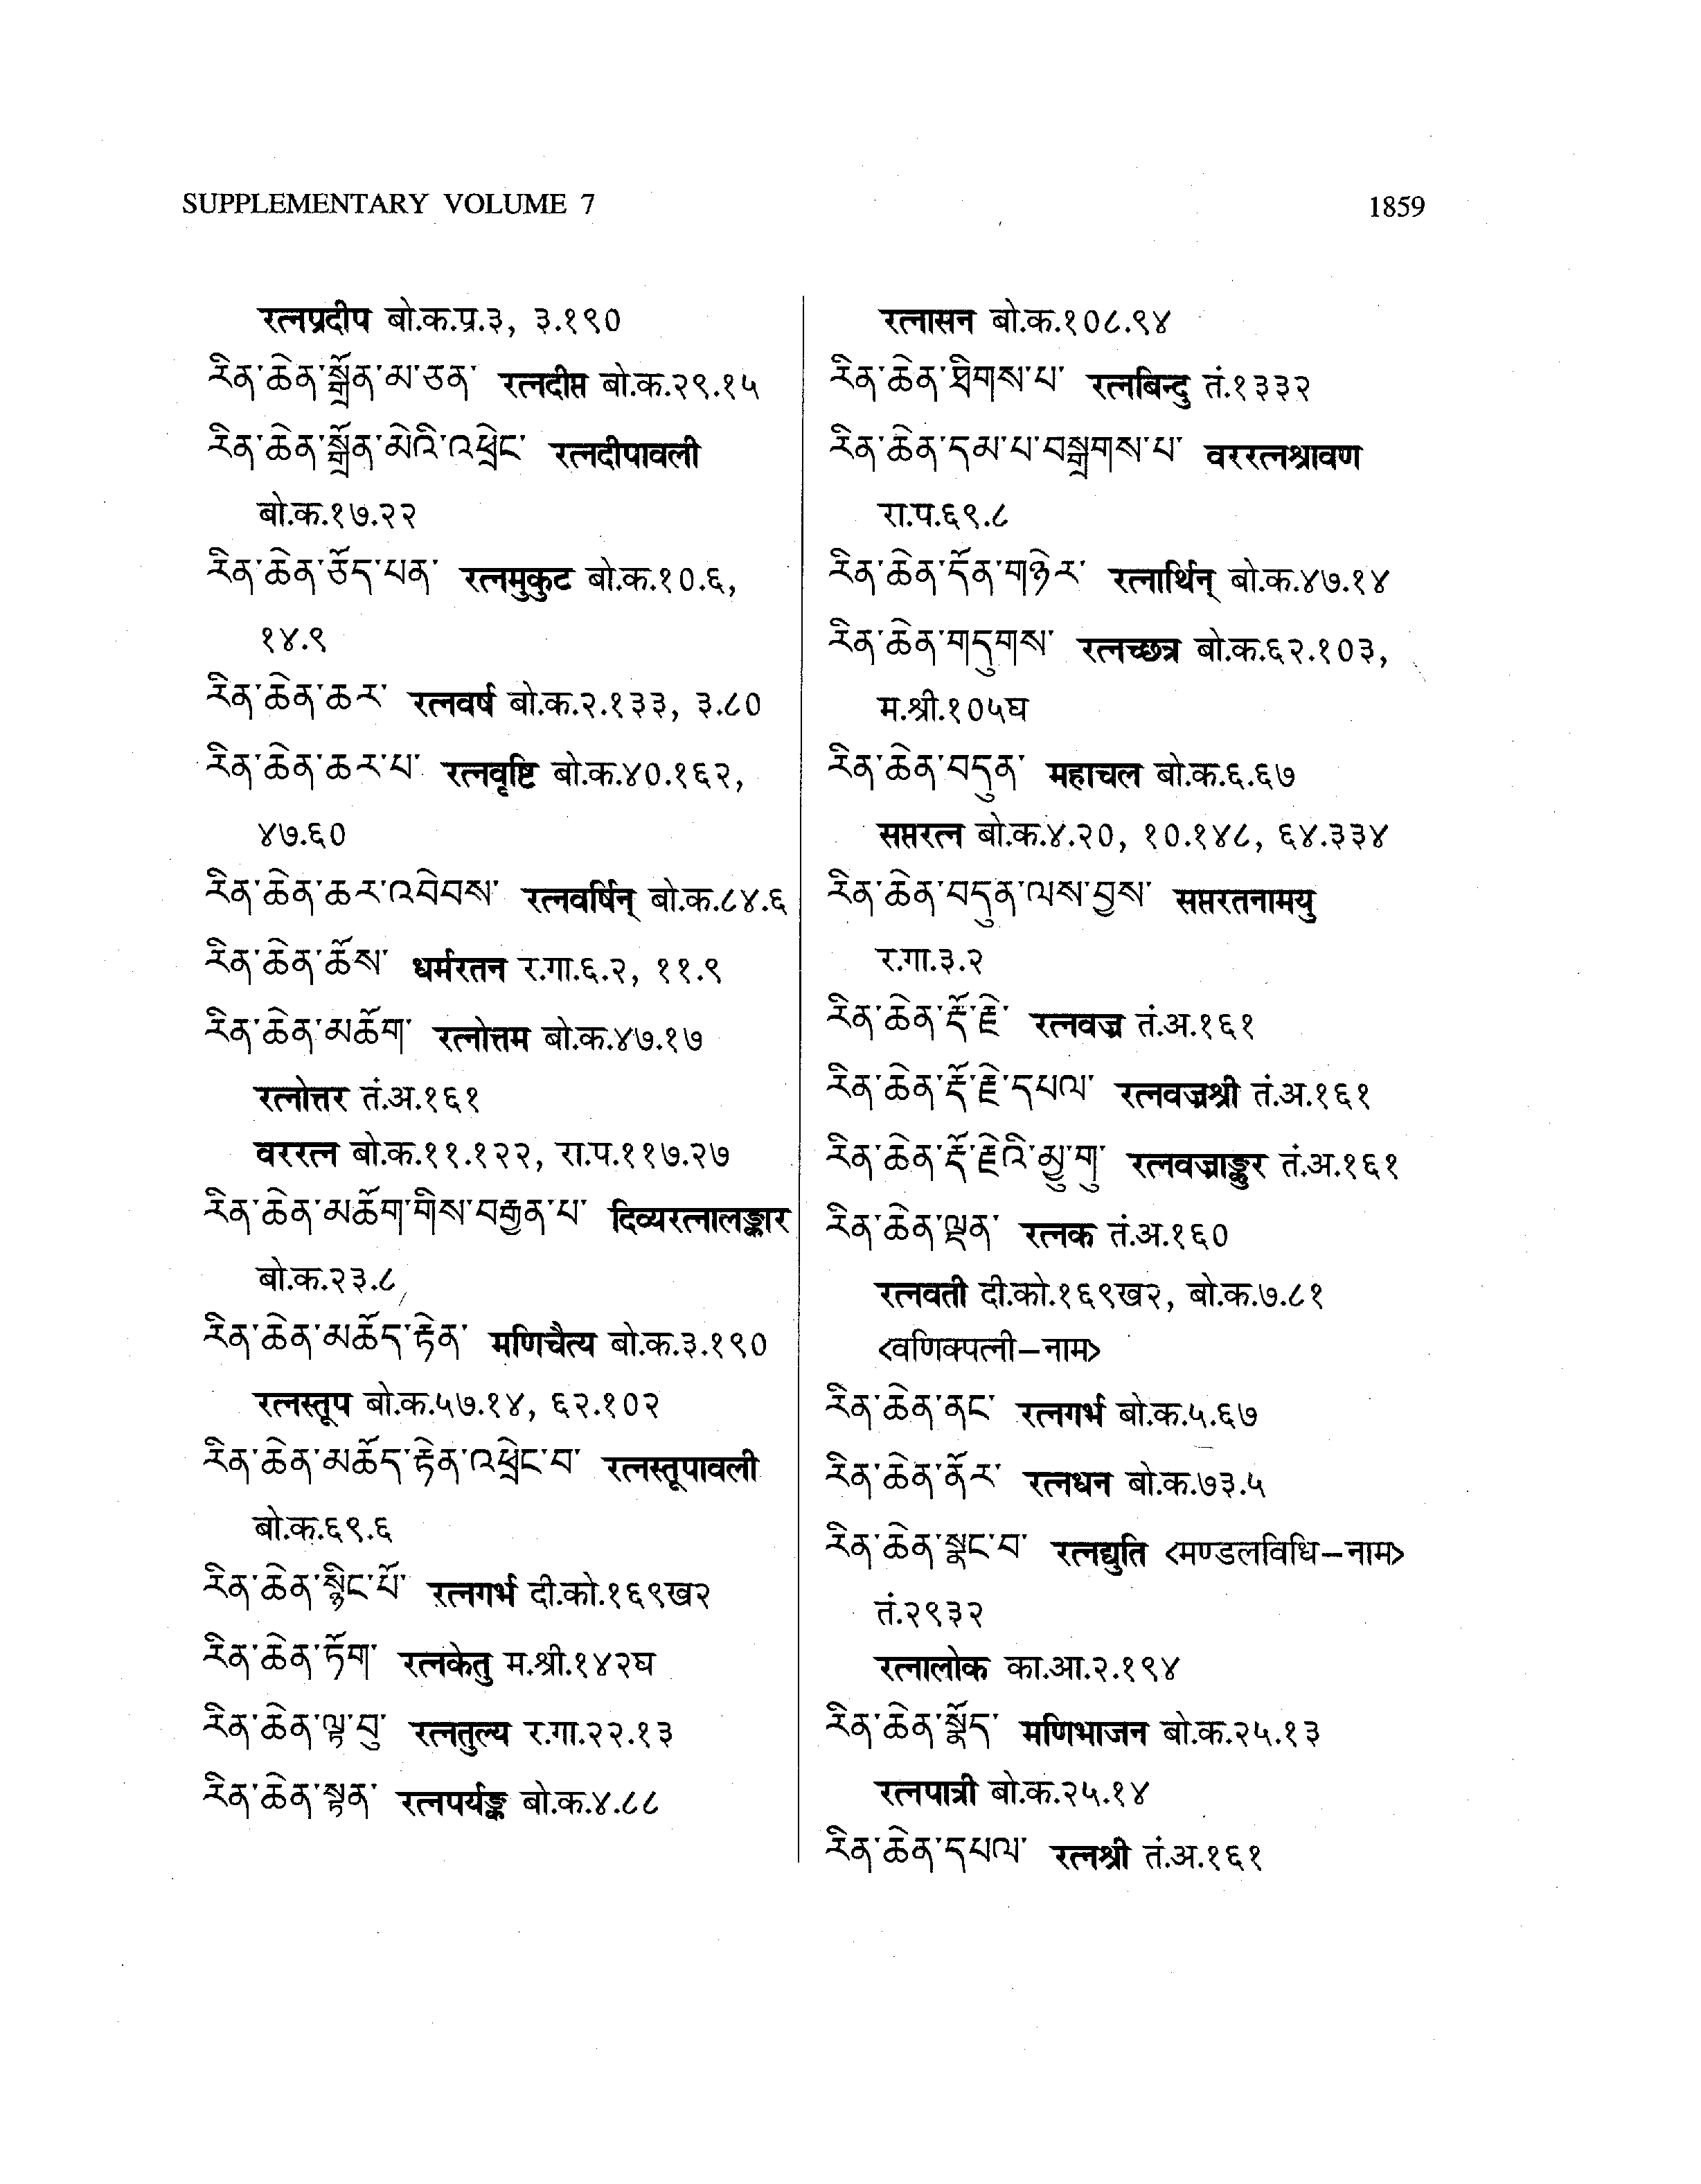 SUPPLEMENTARY VOLUME 7 1859
रत्नप्रदीप बो.क.प्र.३, ३.१९०
རིན་ཆེན་སྒྲོན་མ་ཅན་ रत्नदीप्त बो.क.२९.१५
རིན་ཆེན་སྒྲོན་མེའི་འཕྲེང་ रत्नदीपावली
बो.क.१७.२२
རིན་ཆེན་ཅོད་པན་ रत्नमुकुट बो.क.१०.६,
१४.९
རིན་ཆེན་ཆར་ रत्नवर्ष बो.क.२.१३३, ३.८०
རིན་ཆེན་ཆར་པ་ रत्नवृष्टि बो.क.४०.१६२,
४७.६०
རིན་ཆེན་ཆར་འབེབས་ रत्नवर्षिन् बो.क.८४.६
རིན་ཆེན་ཆོས་ धर्मरतन र.गा.६.२, ११.९
རིན་ཆེན་མཆོག་ रत्नोत्तम बो.क.४७.१७
रत्नोत्तर तं.अ.१६१
वररत्न बो.क.११.१२२, रा.प.११७.२७
རིན་ཆེན་མཆོག་གིས་བརྒྱན་པ་ दिव्यरत्नालङ्कार
बो.क.२३.८
རིན་ཆེན་མཆོད་རྟེན་ मणिचैत्य बो.क.३.१९०
रत्नस्तूप बो.क.५७.१४, ६२.१०२
རིན་ཆེན་མཆོད་རྟེན་འཕྲེང་བ་ रत्नस्तूपावली
बो.क.६९.६
རིན་ཆེན་སྙིང་པོ་ रत्नगर्भ दी.को.१६९ख२
རིན་ཆེན་ཏོག་ रत्नकेतु म.श्री.१४२घ
རིན་ཆེན་ལྟ་བུ་ रत्नतुल्य र.गा.२२.१३
རིན་ཆེན་སྟན་ रत्नपर्यङ्क बो.क.४.८८
रत्नासन बो.क.१०८.९४
རིན་ཆེན་ཐིགས་པ་ रत्नबिन्दु तं.१३३२
རིན་ཆེན་དམ་པ་བསྒྲགས་པ་ वररत्नश्रावण
रा.प.६९.८
རིན་ཆེན་དོན་གཉེར་ रत्नार्थिन् बो.क.४७.१४
རིན་ཆེན་གདུགས་ रत्नच्छत्र बो.क.६२.१०३,
म.श्री.१०५घ
རིན་ཆེན་བདུན་ महाचल बो.क.६.६७
सप्तरत्न बो.क.४.२०, १०.१४८, ६४.३३४
རིན་ཆེན་བདུན་ལས་བྱས་ सप्तरतनामयु
र.गा.३.२
རིན་ཆེན་རྡོ་རྗེ་ रत्नवज्र तं.अ.१६१
རིན་ཆེན་རྡོ་རྗེ་དཔལ་ रत्नवज्रश्री तं.अ.१६१
རིན་ཆེན་རྡོ་རྗེའི་མྱུ་གུ་ रत्नवज्राङ्कुर तं.अ.१६१
རིན་ཆེན་ལྡན་ रत्नक तं.अ.१६०
रत्नवती दी.को.१६९ख२, बो.क.७.८१
<वणिक्पत्नी–नाम>
རིན་ཆེན་ནང་ रत्नगर्भ बो.क.५.६७
རིན་ཆེན་ནོར་ रत्नधन बो.क.७३.५
རིན་ཆེན་སྣང་བ་ रत्नद्युति <मण्डलविधि–नाम>
तं.२९३२
रत्नालोक का.आ.२.१९४
རིན་ཆེན་སྣོད་ मणिभाजन बो.क.२५.१३
रत्नपात्री बो.क.२५.१४
རིན་ཆེན་དཔལ་ रत्नश्री तं.अ.१६१